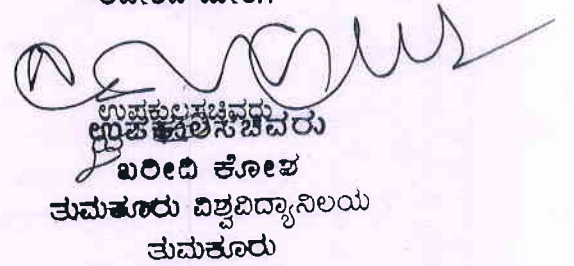 ಉಪಕುಲಸಚಿವರು
ಉಪಕುಲಸಚಿವರು
ಖರೀದಿ ಕೋಶ
ತುಮಕೂರು ವಿಶ್ವವಿದ್ಯಾನಿಲಯ
ತುಮಕೂರು